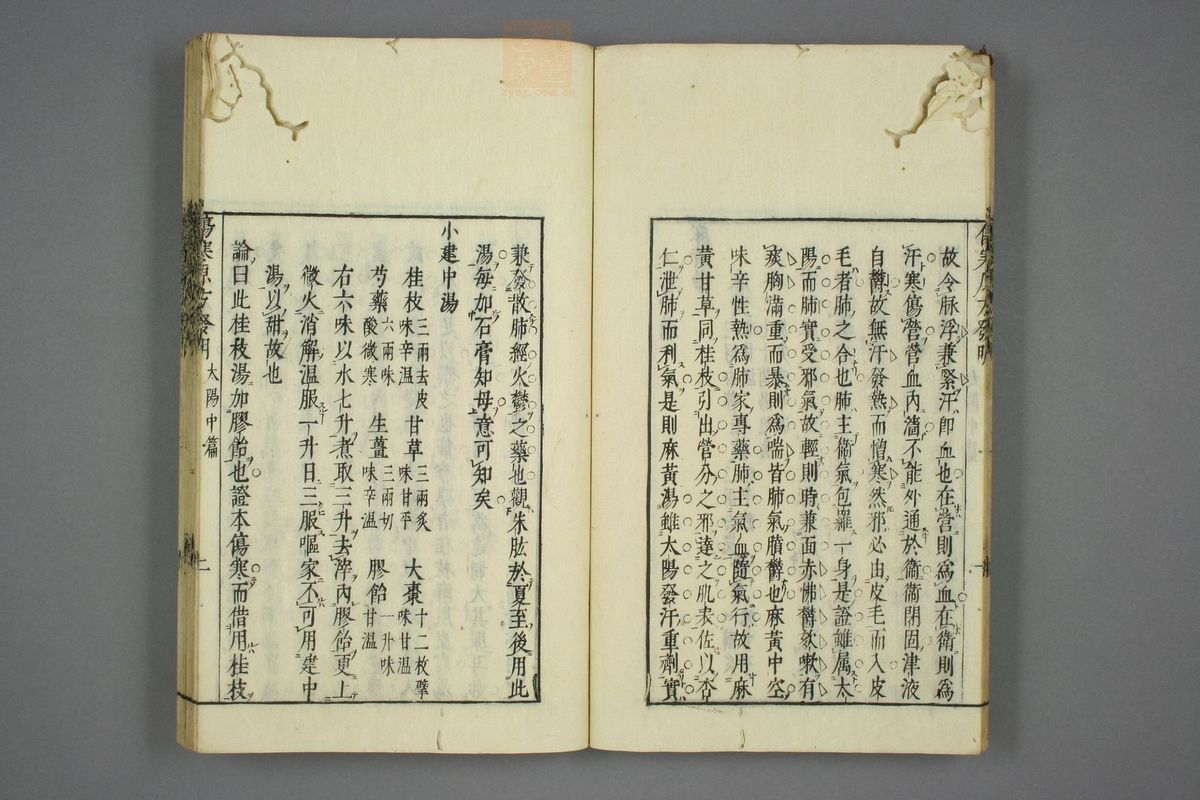 故令脉浮兼緊汗即血也在營則爲血在衛則爲
汗寒傷營營血內濇不能外通於衛衛閉固津液
自鬱故無汗發熱而憎寒然邪必由皮毛而入皮
毛者肺之合也肺主衛氣包羅一身是證雖属太
陽而肺實受邪氣故輕則時兼面赤怫鬱欬嗽有
痰胸滿重而暴則爲喘皆肺氣膹鬱也麻黃中空
味辛性熱爲肺家專藥肺主氣血隨氣行故用麻
黃甘草同桂枝引出營分之邪達之肌表佐以杏
仁泄肺而利氣是則麻黃湯雖太陽發汗重劑實
兼發散肺經火鬱之藥也觀朱肱於夏至後用此
湯每加石膏知母意可知矣
小建中湯
桂枝三兩去皮味辛温 甘草三兩炙味甘平 大棗十二枚擘味甘温
芍藥六兩味酸微寒 生薑三兩切味辛温 膠飴一升味甘温
右六味以水七升煮取三升去滓內膠飴更上
微火消解温服一升日三服嘔家不可用建中
湯以甜故也
論曰此桂枝湯加膠飴也證本傷寒而借用桂枝
太陽中篇
二
zysj.com.cn